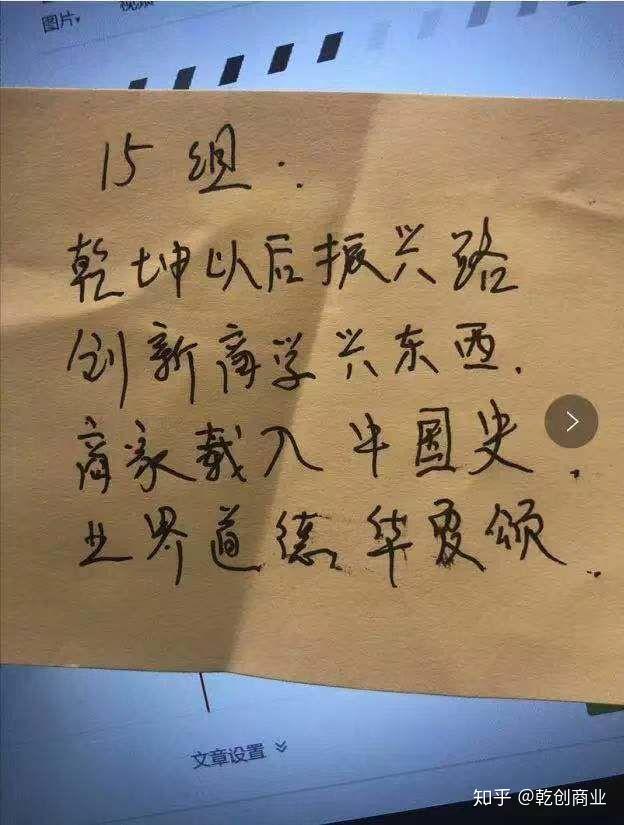 图片
视频
15组.
乾坤以后振兴路
创新商学兴东西.
商家载入中国史.
业界道德华夏颂.
文章设置
知乎 @乾创商业